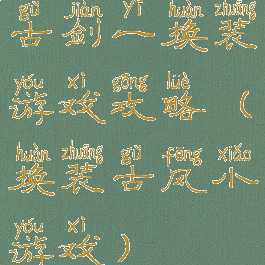 gǔ jiàn yī huàn zhuāng
古剑一换装
yóu xì gōng lüè
游戏攻略（
huàn zhuāng gǔ fēng xiǎo
换装古风小
yóu xì
游戏）